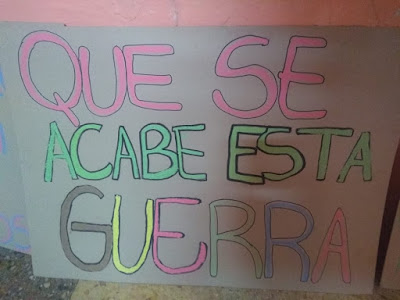 QUE SE
ACABE ESTA
GUERRA